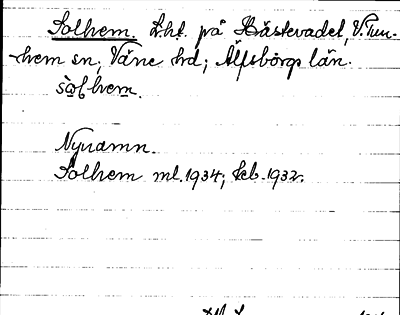 Solhem. Lht. på Hästevadet, V. Tun-
hem sn; Väne hd; Älfsborgs län.
sòlhem.
Nynamn.
Solhem ml. 1934; keb. 1932.